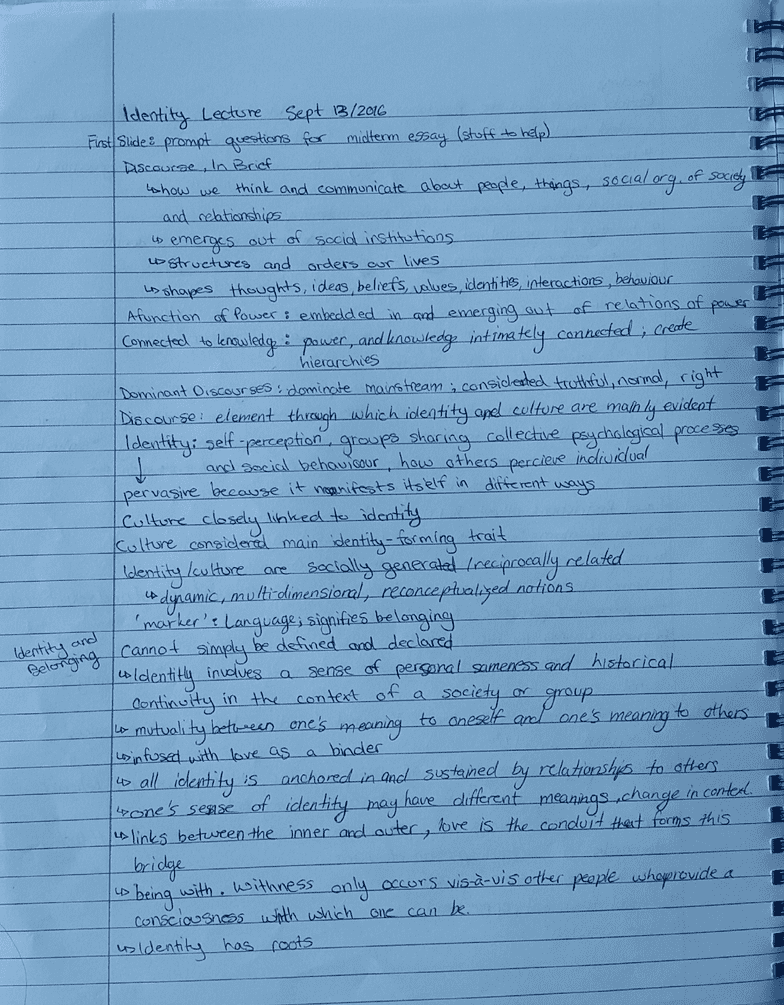 Identity Lecture Sept 13/2016
First Slide: prompt questions for midterm essay (stuff to help)
Discourse, In Brief
↳ how we think and communicate about people, things, social org. of society
and relationships
↳ emerges out of social institutions
↳ structures and orders our lives
↳ shapes thoughts, ideas, beliefs, values, identities, interactions, behaviour
A function of Power: embedded in and emerging out of relations of power
Connected to knowledge: power, and knowledge intimately connected; create
hierarchies
Dominant Discourses: dominate mainstream; considered truthful, normal, right
Discourse: element through which identity and culture are mainly evident
Identity: self-perception, groups sharing collective psychological processes
↓ and social behaviour, how others percieve individual
pervasive because it manifests itself in different ways
Culture closely linked to identity
Culture considered main identity-forming trait
Identity/culture are socially generated/reciprocally related
↳ dynamic, multi-dimensional, reconceptualized notions
'marker': Language; signifies belonging
Identity and
Belonging
Cannot simply be defined and declared
↳ Identity involves a sense of personal sameness and historical
continuity in the context of a society or group
↳ mutuality between one's meaning to oneself and one's meaning to others
↳ infused with love as a binder
↳ all identity is anchored in and sustained by relationships to others
↳ one's sense of identity may have different meanings, change in context.
↳ links between the inner and outer, love is the conduit that forms this
bridge
↳ being with. Withness only occurs vis-à-vis other people who provide a
consciousness with which one can be.
↳ Identity has roots